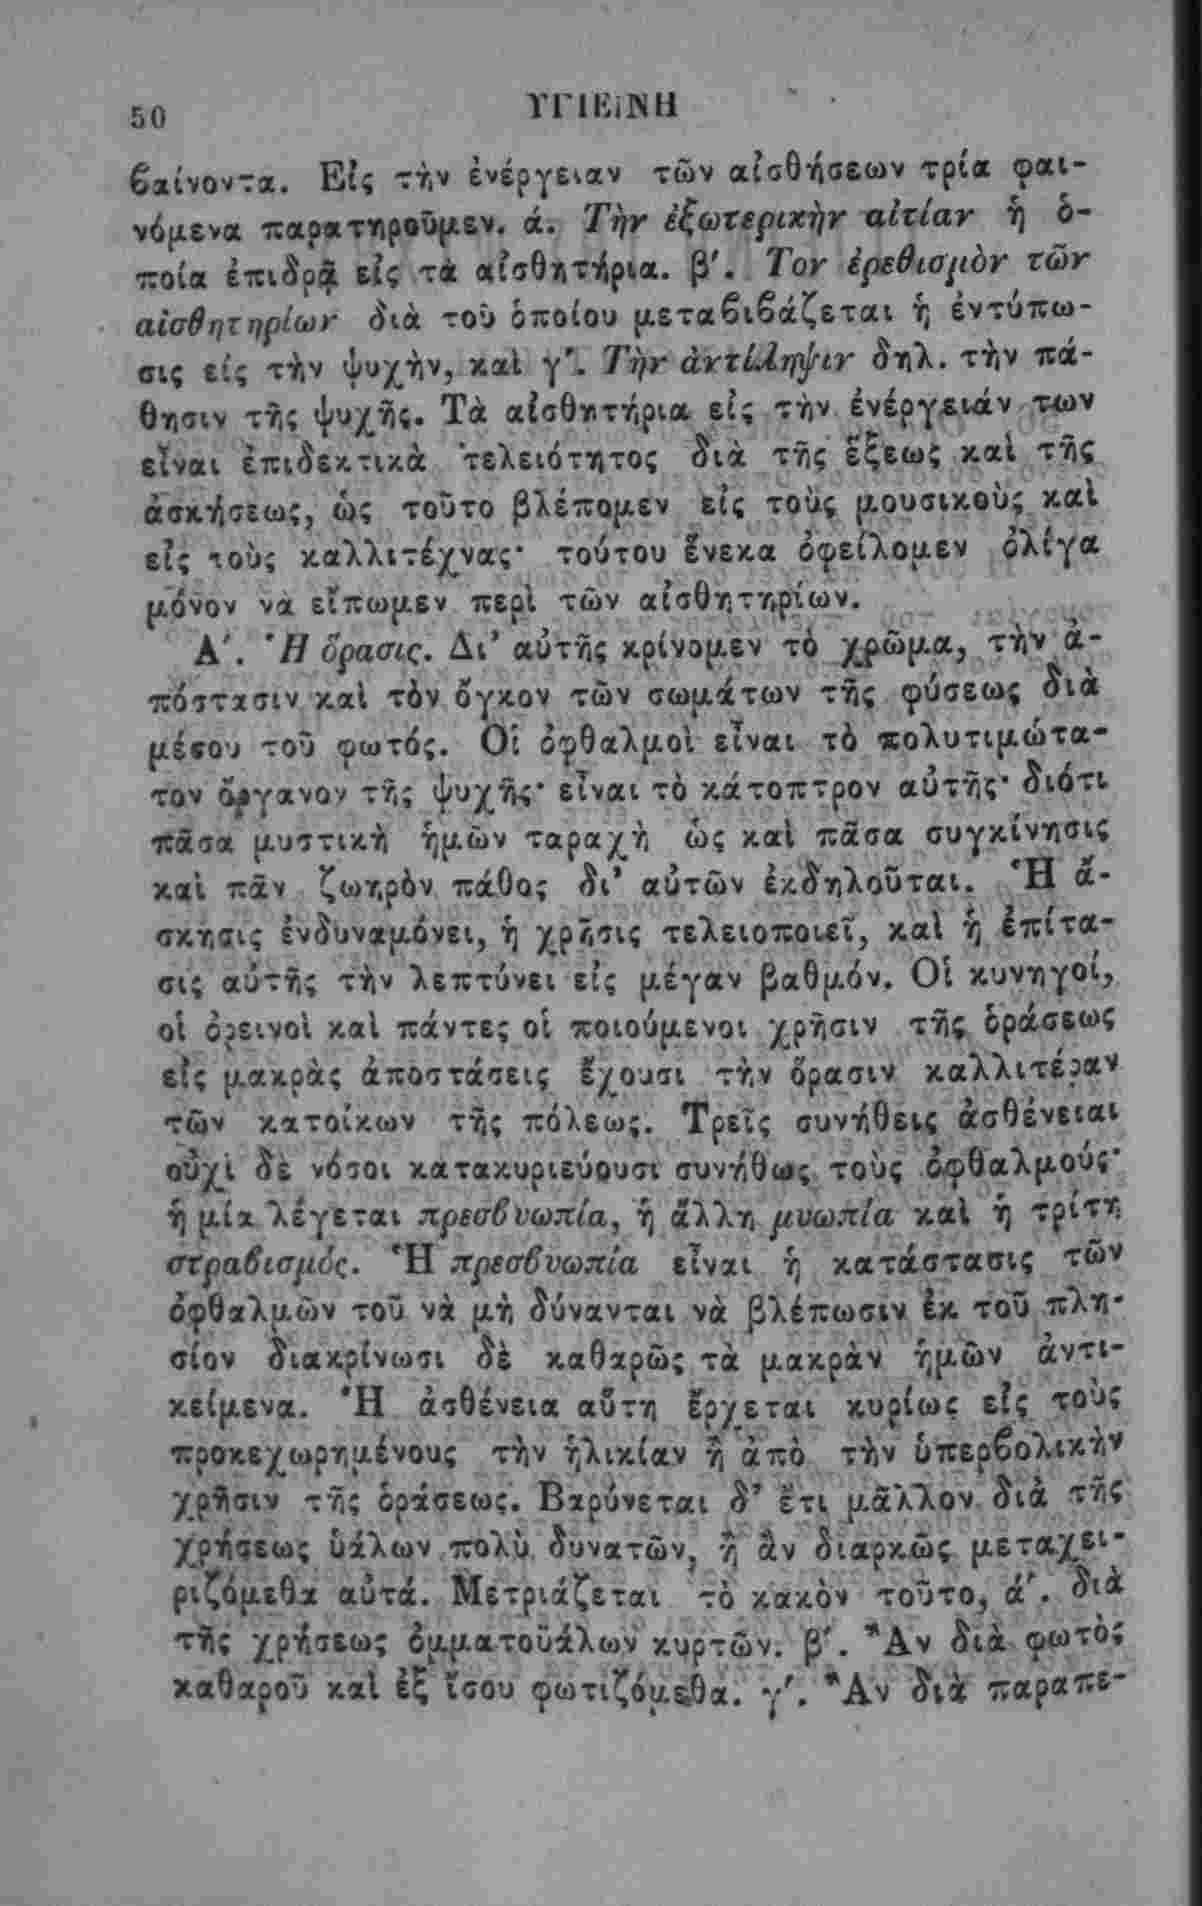 50
ΥΓΙΕΙΝΗ
βαίνοντα. Εἰς τὴν ἐνέργειαν τῶν αἰσθήσεων τρία φαι-
νόμενα παρατηροῦμεν. ά. Τὴν ἐξωτερικὴν αἰτίαν ἡ ὁ-
ποία ἐπιδρᾷ εἰς τὰ αἰσθητήρια. β'. Τον ἐρεθισμὸν τῶν
αἰσθητηρίων διὰ τοῦ ὁποίου μεταβιβάζεται ἡ ἐντύπω-
σις εἰς τὴν ψυχὴν, καὶ γ'. Τὴν ἀντίληψιν δηλ. τὴν πά-
θησιν τῆς ψυχῆς. Τὰ αἰσθητήρια εἰς τὴν ἐνέργειάν των
εἶναι ἐπιδεκτικὰ τελειότητος διὰ τῆς ἕξεως καὶ τῆς
ἀσκήσεως, ὡς τοῦτο βλέπομεν εἰς τοὺς μουσικοὺς καὶ
εἰς τοὺς καλλιτέχνας· τούτου ἕνεκα ὀφείλομεν ὀλίγα
μόνον νὰ εἴπωμεν περὶ τῶν αἰσθητηρίων.
Α'. Ἡ ὅρασις. Δι' αὐτῆς κρίνομεν τὸ χρῶμα, τὴν ἀ-
πόστασιν καὶ τὸν ὄγκον τῶν σωμάτων τῆς φύσεως διὰ
μέσου τοῦ φωτός. Οἱ ὀφθαλμοὶ εἶναι τὸ πολυτιμώτα-
τον ὄργανον τῆς ψυχῆς· εἶναι τὸ κάτοπτρον αὐτῆς· διότι
πᾶσα μυστικὴ ἡμῶν ταραχὴ ὡς καὶ πᾶσα συγκίνησις
καὶ πᾶν ζωηρὸν πάθος δι' αὐτῶν ἐκδηλοῦται. Ἡ ἄ-
σκησις ἐνδυναμόνει, ἡ χρῆσις τελειοποιεῖ, καὶ ἡ ἐπίτα-
σις αὐτῆς τὴν λεπτύνει εἰς μέγαν βαθμόν. Οἱ κυνηγοί,
οἱ ὀρεινοὶ καὶ πάντες οἱ ποιούμενοι χρῆσιν τῆς ὁράσεως
εἰς μακρὰς ἀποστάσεις ἔχουσι τὴν ὅρασιν καλλιτέραν
τῶν κατοίκων τῆς πόλεως. Τρεῖς συνήθεις ἀσθένειαι
οὐχὶ δὲ νόσοι κατακυριεύουσι συνήθως τοὺς ὀφθαλμούς·
ἡ μία λέγεται πρεσβυωπία, ἡ ἄλλη μυωπία καὶ ἡ τρίτη
στραβισμός. Ἡ πρεσβυωπία εἶναι ἡ κατάστασις τῶν
ὀφθαλμῶν τοῦ νὰ μὴ δύνανται νὰ βλέπωσιν ἐκ τοῦ πλη-
σίον διακρίνωσι δὲ καθαρῶς τὰ μακρὰν ἡμῶν ἀντι-
κείμενα. Ἡ ἀσθένεια αὕτη ἔρχεται κυρίως εἰς τοὺς
προκεχωρημένους τὴν ἡλικίαν ἢ ἀπὸ τὴν ὑπερβολικὴν
χρῆσιν τῆς ὁράσεως. Βαρύνεται δ' ἔτι μᾶλλον διὰ τῆς
χρήσεως ὑάλων πολὺ δυνατῶν, ἢ ἂν διαρκῶς μεταχει-
ριζόμεθα αὐτά. Μετριάζεται τὸ κακὸν τοῦτο, ά'. διὰ
τῆς χρήσεως ὀμματοϋάλων κυρτῶν. β'. Ἂν διὰ φωτὸς
καθαροῦ καὶ ἐξ ἴσου φωτιζόμεθα. γ'. Ἂν διὰ παραπε-